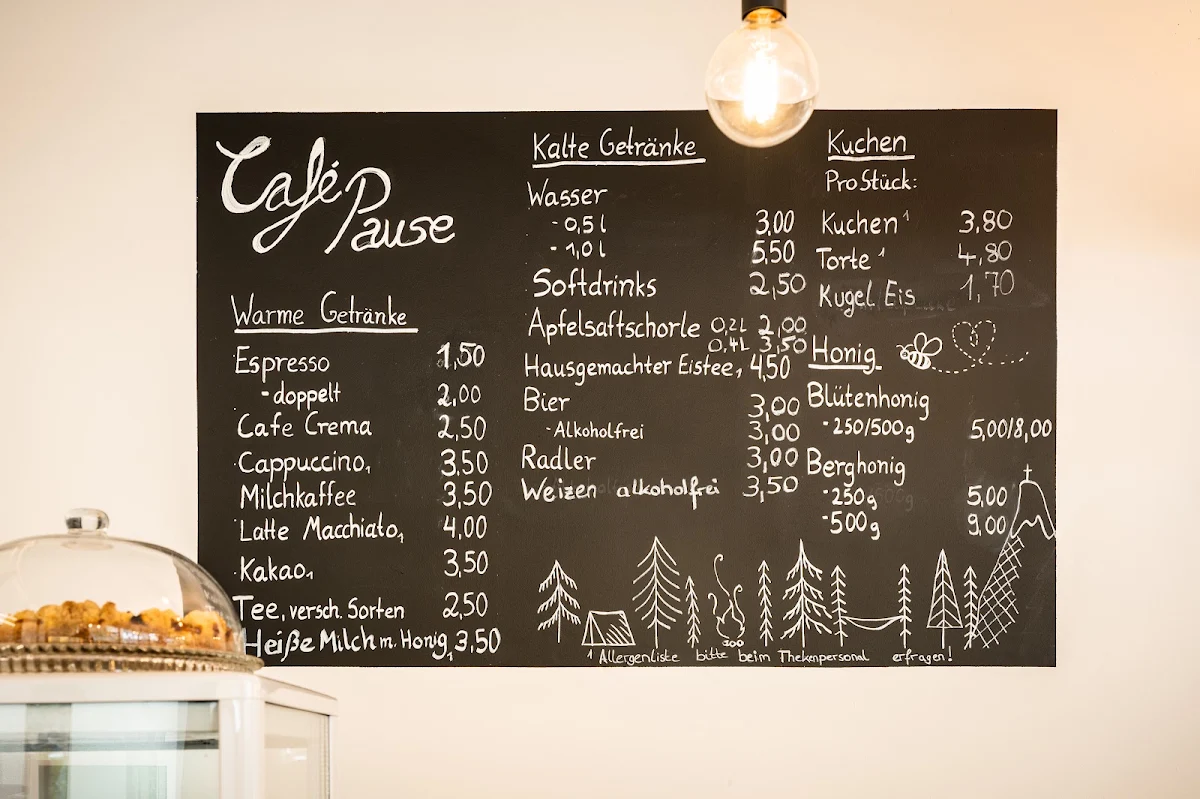 Café
Pause
Warme Getränke
Espresso 1,50
- doppelt 2,00
Cafe Crema 2,50
Cappuccino₁ 3,50
Milchkaffee 3,50
Latte Macchiato₁ 4,00
Kakao₁ 3,50
Tee, versch. Sorten 2,50
Heiße Milch m. Honig₁ 3,50
Kalte Getränke
Wasser
- 0,5 l 3,00
- 1,0 l 5,50
Softdrinks 2,50
Apfelsaftschorle 0,2L 2,00
0,4L 3,50
Hausgemachter Eistee₁ 4,50
Bier 3,00
- Alkoholfrei 3,00
Radler 3,00
Weizen alkoholfrei 3,50
Kuchen
Pro Stück:
Kuchen¹ 3,80
Torte¹ 4,80
Kugel Eis 1,70
Honig
Blütenhonig
- 250/500g 5,00/8,00
Berghonig
- 250g 5,00
- 500g 9,00
¹ Allergenliste bitte beim Thekenpersonal erfragen!